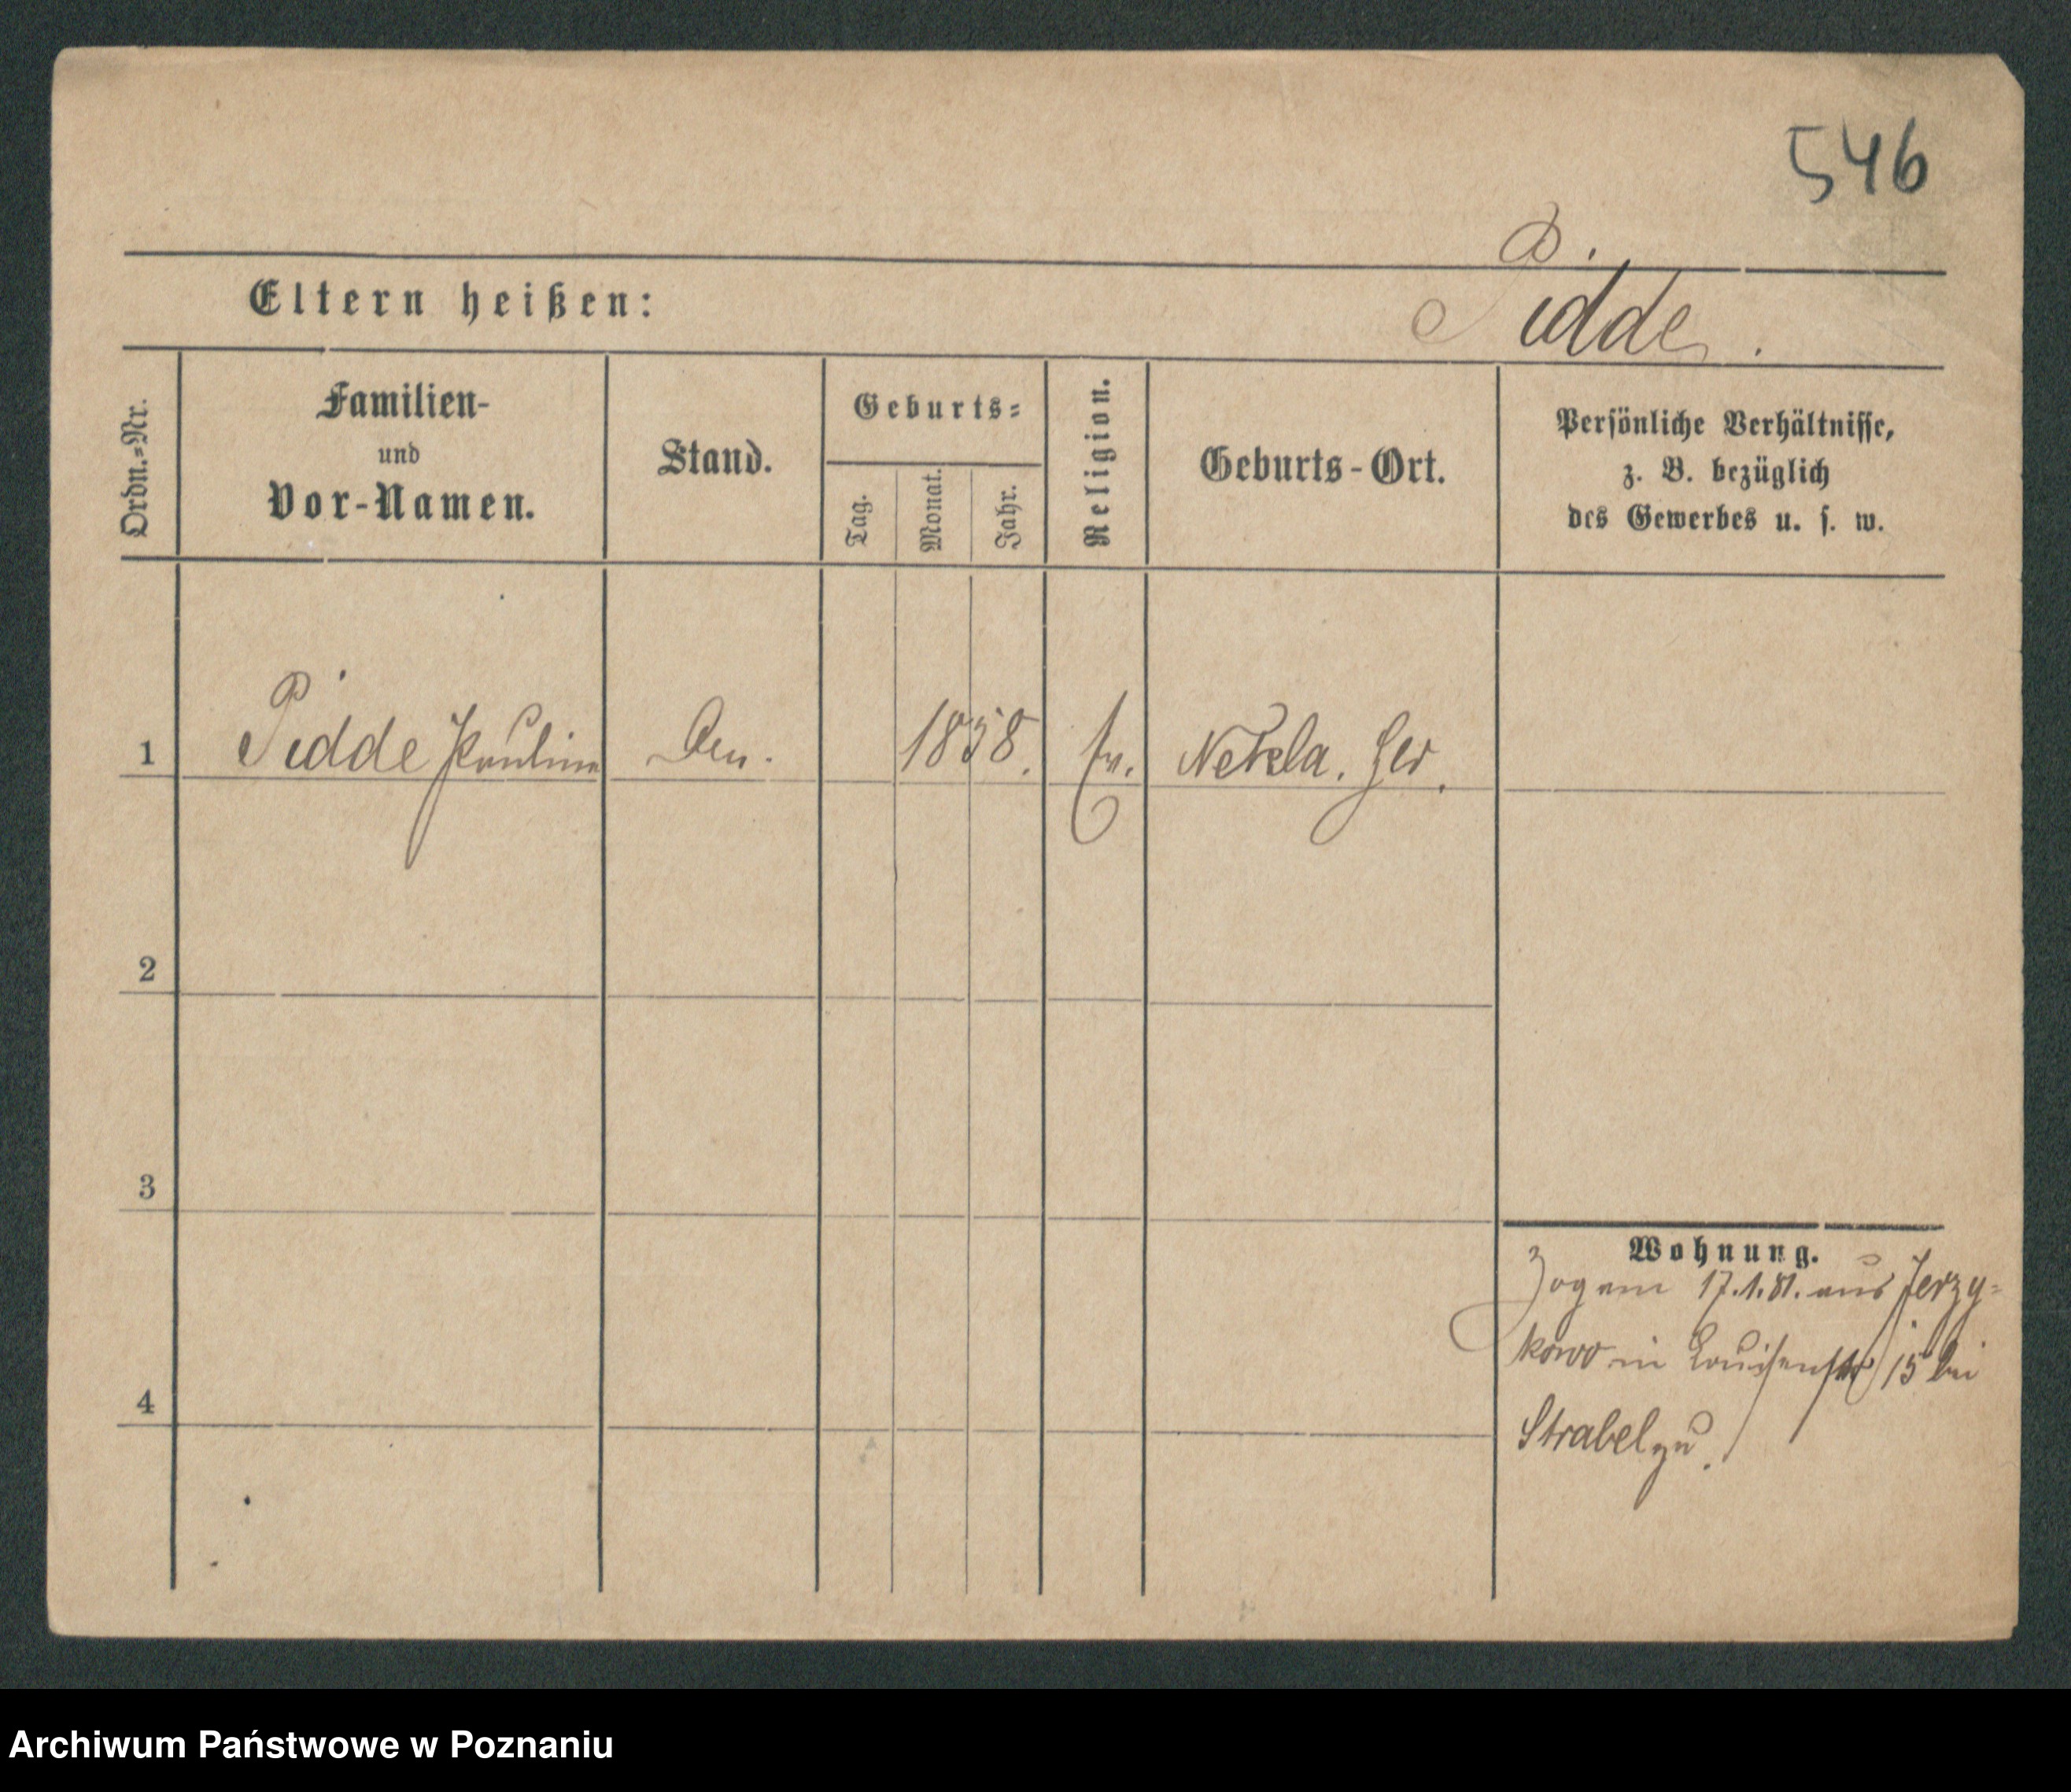 546
Pidde.
Eltern heißen:
Ordn.=Nr.
Familien-
und
Vor-Namen.
Stand.
Geburts=
Tag.
Monat.
Jahr.
Religion.
Geburts-Ort.
Persönliche Verhältnisse,
z. B. bezüglich
des Gewerbes u. s. w.
1 Pidde Pauline 1858. ev. Nekla.
2
3
4
Wohnung.
Zog am 17.1.81. aus Jerzy=
kowo in Louisenstr 15 bei
Strabel zu.
Archiwum Państwowe w Poznaniu